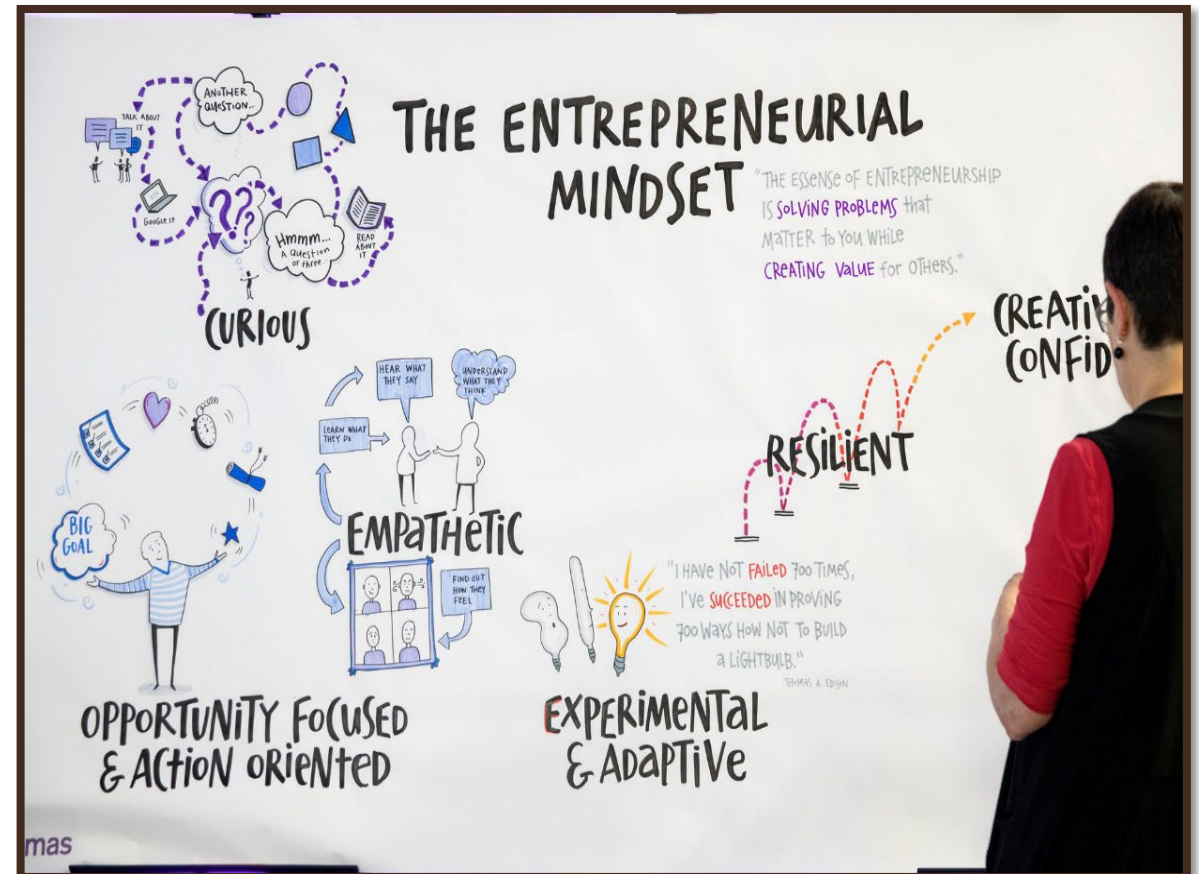 THE ENTREPRENEURIAL
MINDSET
"THE ESSENSE OF ENTREPRENEURSHIP
IS SOLVING PROBLEMS that
MATTER to YOU WHILE
CREATING VALUE for OTHERS."
ANOTHER
QUESTION...
TALK ABOUT
IT
GOOGLE IT
??
Hmmm...
A QUESTION
or three
READ
ABOUT
IT
CURIOUS
HEAR WHAT
THEY SAY
UNDERSTAND
WHAT THEY
THINK
LEARN WHAT
THEY DO
EMPATHETIC
FIND OUT
HOW THEY
FEEL
BIG
GOAL
OPPORTUNITY FOCUSED
& ACTION ORIENTED
CREATI
CONFID
RESILIENT
"I HAVE NOT FAILED 700 TIMES,
I'VE SUCCEEDED IN PROVING
700 WAYS HOW NOT TO BUILD
a LIGHTBULB."
THOMAS A. EDISON
EXPERIMENTAL
& ADAPTIVE
mas